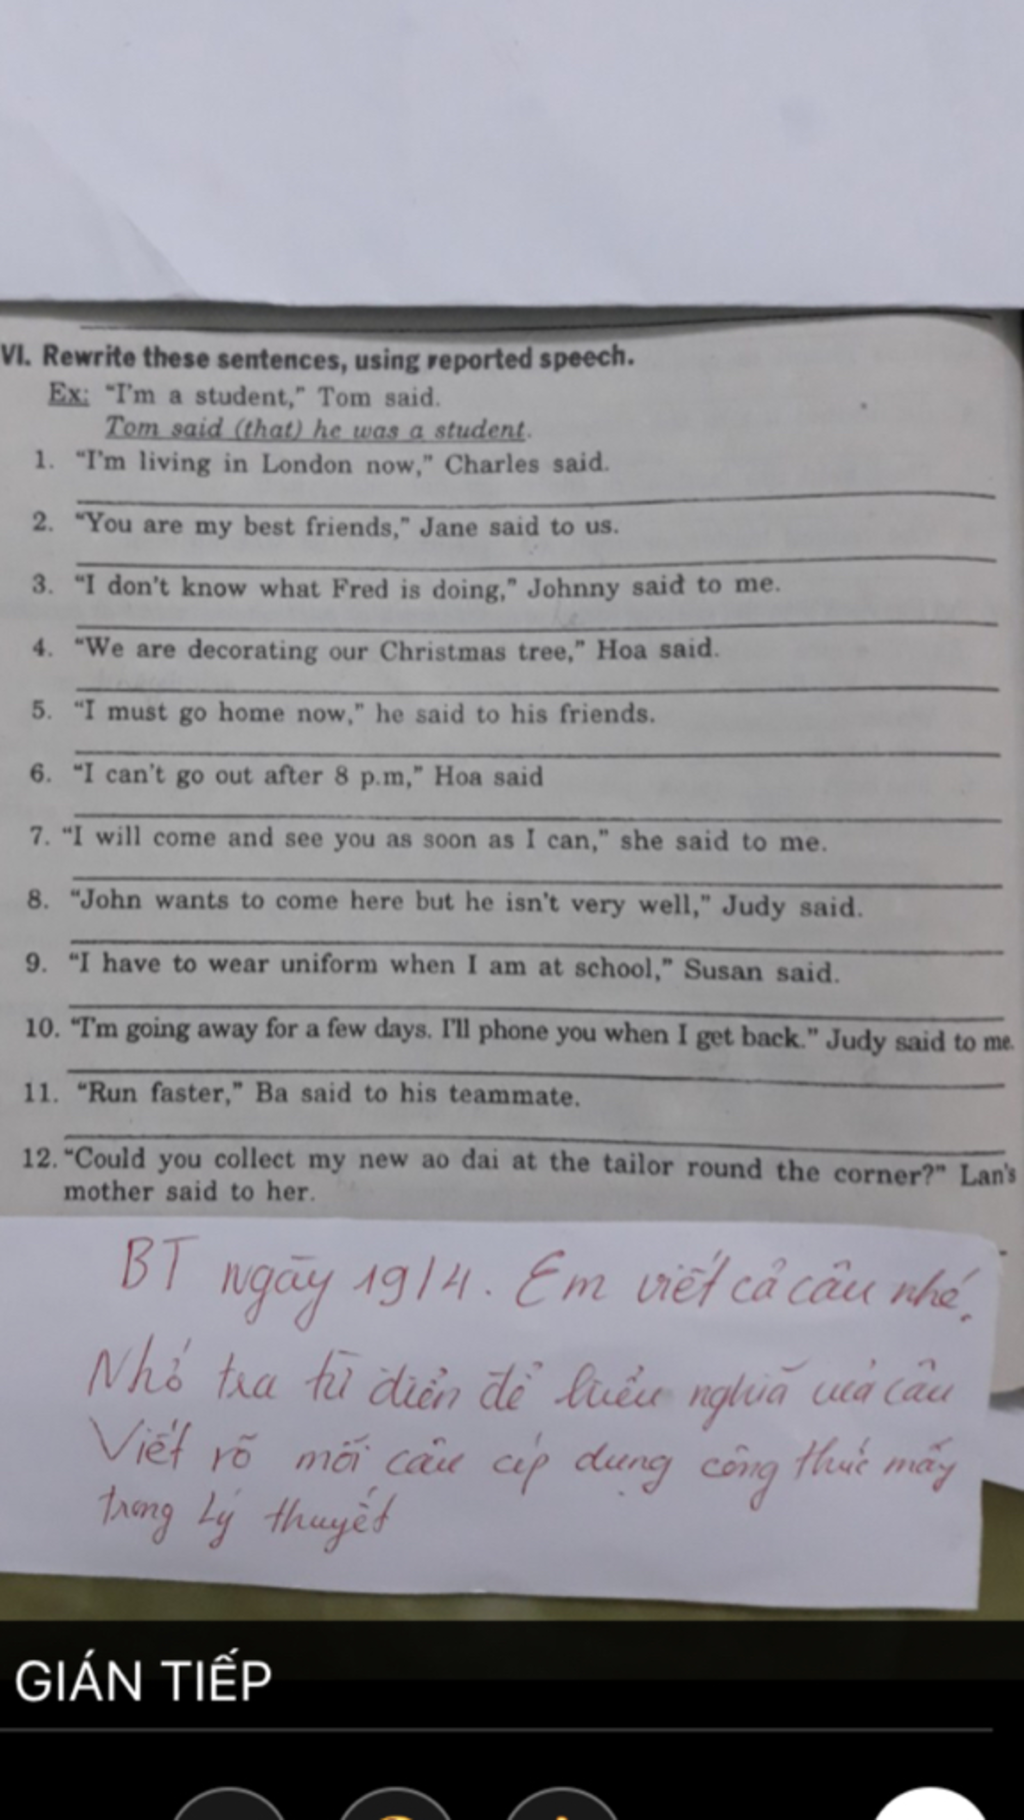 VI. Rewrite these sentences, using reported speech.
Ex: “I'm a student,” Tom said.
Tom said (that) he was a student.
1. “I'm living in London now,” Charles said.
2. “You are my best friends,” Jane said to us.
3. “I don't know what Fred is doing,” Johnny said to me.
4. “We are decorating our Christmas tree,” Hoa said.
5. “I must go home now,” he said to his friends.
6. “I can't go out after 8 p.m,” Hoa said
7. “I will come and see you as soon as I can,” she said to me.
8. “John wants to come here but he isn't very well,” Judy said.
9. “I have to wear uniform when I am at school,” Susan said.
10. “I'm going away for a few days. I'll phone you when I get back.” Judy said to me.
11. “Run faster,” Ba said to his teammate.
12. “Could you collect my new ao dai at the tailor round the corner?” Lan's
mother said to her.
BT ngày 19/4. Em viết cả câu nhé.
Nhớ tra từ điển để hiểu nghĩa của câu
Viết rõ mỗi câu áp dụng công thức mấy
trong Lý thuyết
GIÁN TIẾP